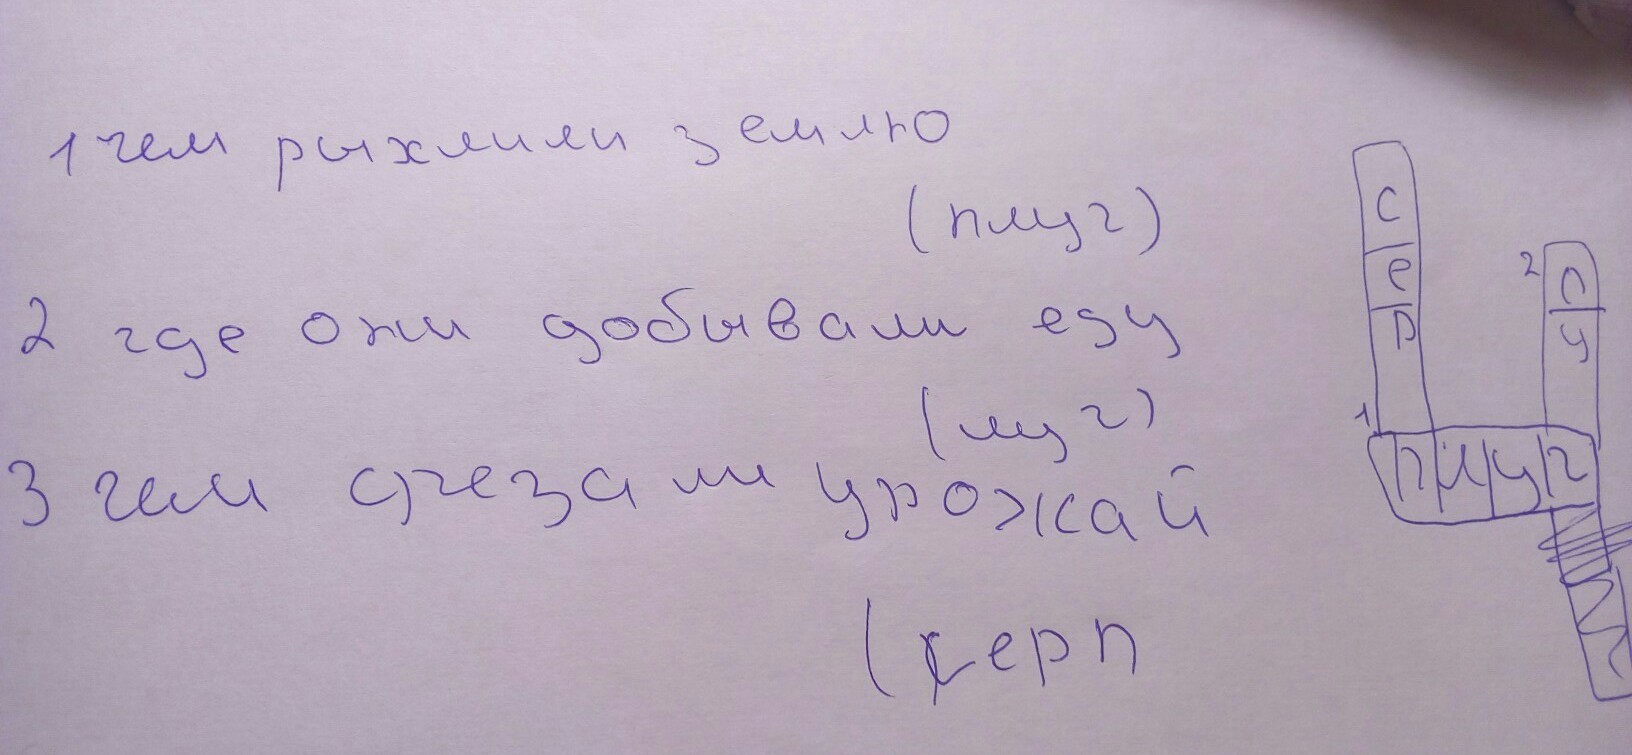 1 чем рыхлили землю
(плуг)
2 где они добывали еду
(луг)
3 чем срезали урожай
(серп
с
е
р
1
2
л
у
плуг